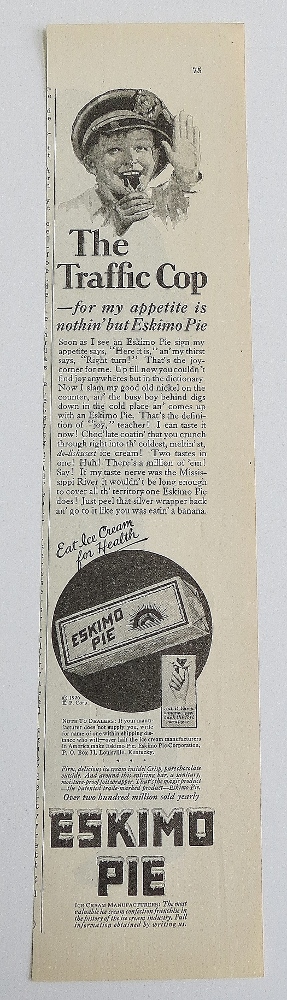 75
The
Traffic Cop
—for my appetite is
nothin' but Eskimo Pie
Soon as I see an Eskimo Pie sign my
appetite says, "Here it is," an' my thirst
says, "Right turn!" That's the joy-
corner for me. Up till now you couldn't
find joy anywheres but in the dictionary.
Now I slam my good old nickel on the
counter, an' the busy boy behind digs
down in the cold place an' comes up
with an Eskimo Pie. That's the defini-
tion of "joy," teacher! I can taste it
now! Choc'late coatin' that you crunch
through right into th' coldest, meltin'est,
de-lishusest ice cream! Two tastes in
one! Huh! There's a million of 'em!
Say! If my taste nerve was the Missis-
sippi River it wouldn't be long enough
to cover all th' territory one Eskimo Pie
does! Just peel that silver wrapper back
an' go to it like you was eatin' a banana.
Eat Ice Cream
for Health
ESKIMO
PIE
© 1926
E. P. Corp.
NOTE TO DEALERS: If your manu-
facturer does not supply you, write
for name of one within shipping dis-
tance who will—over half the ice cream manufacturers
in America make Eskimo Pie. Eskimo Pie Corporation,
P. O. Box 31, Louisville, Kentucky.
Firm, delicious ice cream inside! Crisp, pure chocolate
outside. And around this enticing bar, a sanitary,
moisture-proof foil wrapper. That's the magic product
—the patented trade-marked product—Eskimo Pie.
Over two hundred million sold yearly
ESKIMO
PIE
ICE CREAM MANUFACTURERS: The most
valuable ice cream confection franchise in
the history of the ice cream industry. Full
information obtained by writing us.